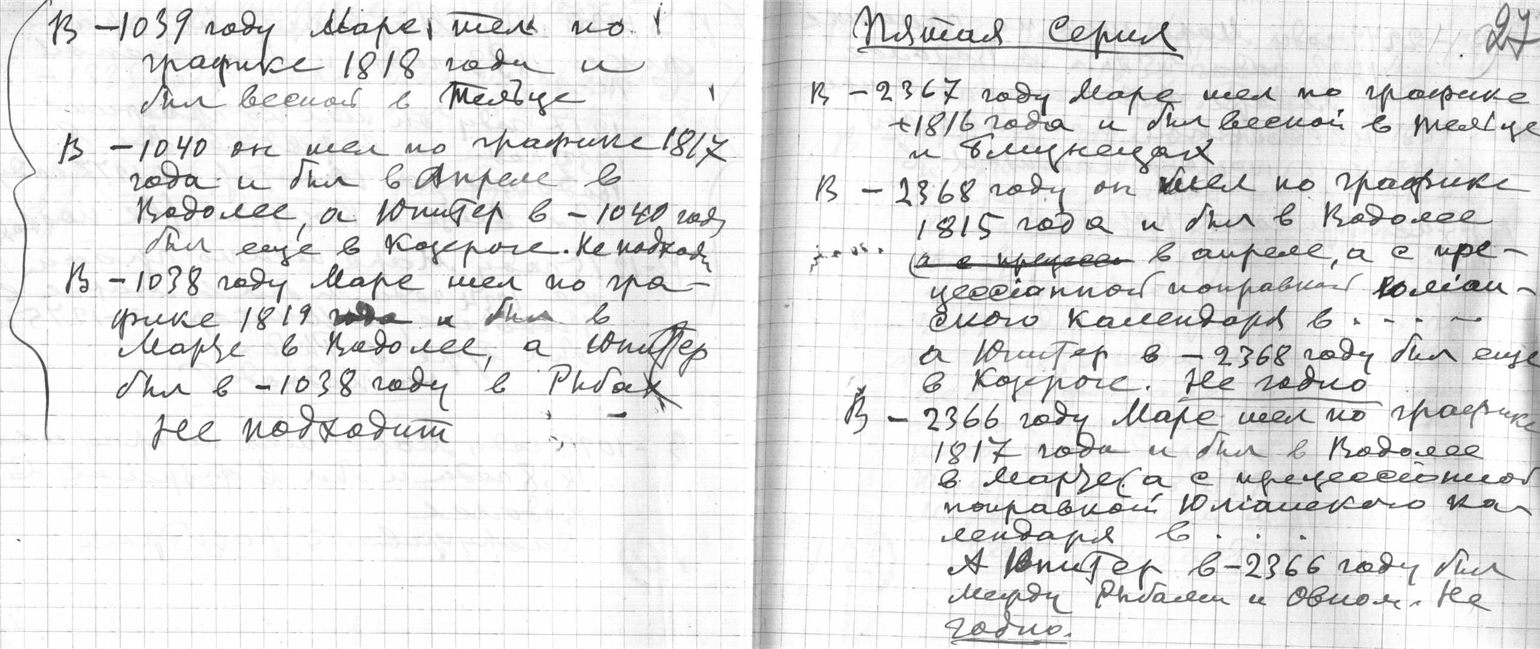 В -1039 году Марс шел по
графике 1818 года и
был весной в Тельце
В -1040 он шел по графике 1817
года и был в Апреле в
Водолее, а Юпитер в -1040 году
был еще в Козероге. Не подходи
В -1038 году Марс шел по гра-
фике 1819 года и был в
Марте в Водолее, а Юпитер
был в -1038 году в Рыбах
Не подходит
Пятая Серия
27
В -2367 году Марс шел по графике
+1816 года и был весной в тельце
и близнецах
В -2368 году он шел по графике
1815 года и был в Водолее
(а с прецесси в апреле, а с пре-
цессіонной поправкой Юліан-
ского календаря в . . . -
а Юпитер в -2368 году был еще
в Козероге. Не годно
В -2366 году Марс шел по графике
1817 года и был в Водолее
в Марте (а с прецессіонной
поправкой Юліанского ка-
лендаря в . . .
А Юпитер в -2366 году был
между Рыбами и Овном. Не
годно.